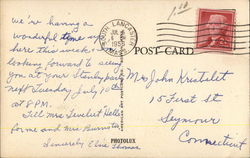 we're having a
wonderful time up
here this week
looking forward to seeing
you at your Stanley party
next Tuesday July 10th
at 8 P.M.
Tell Mrs. Hello
for me and Mrs.
Sincerely, Elsie Thomas
SOUTH LANCASTER
JUL
1956
MASS.
1.50
POST CARD
Mrs John
15 First St
Seymour
Connecticut
PHOTOLUX